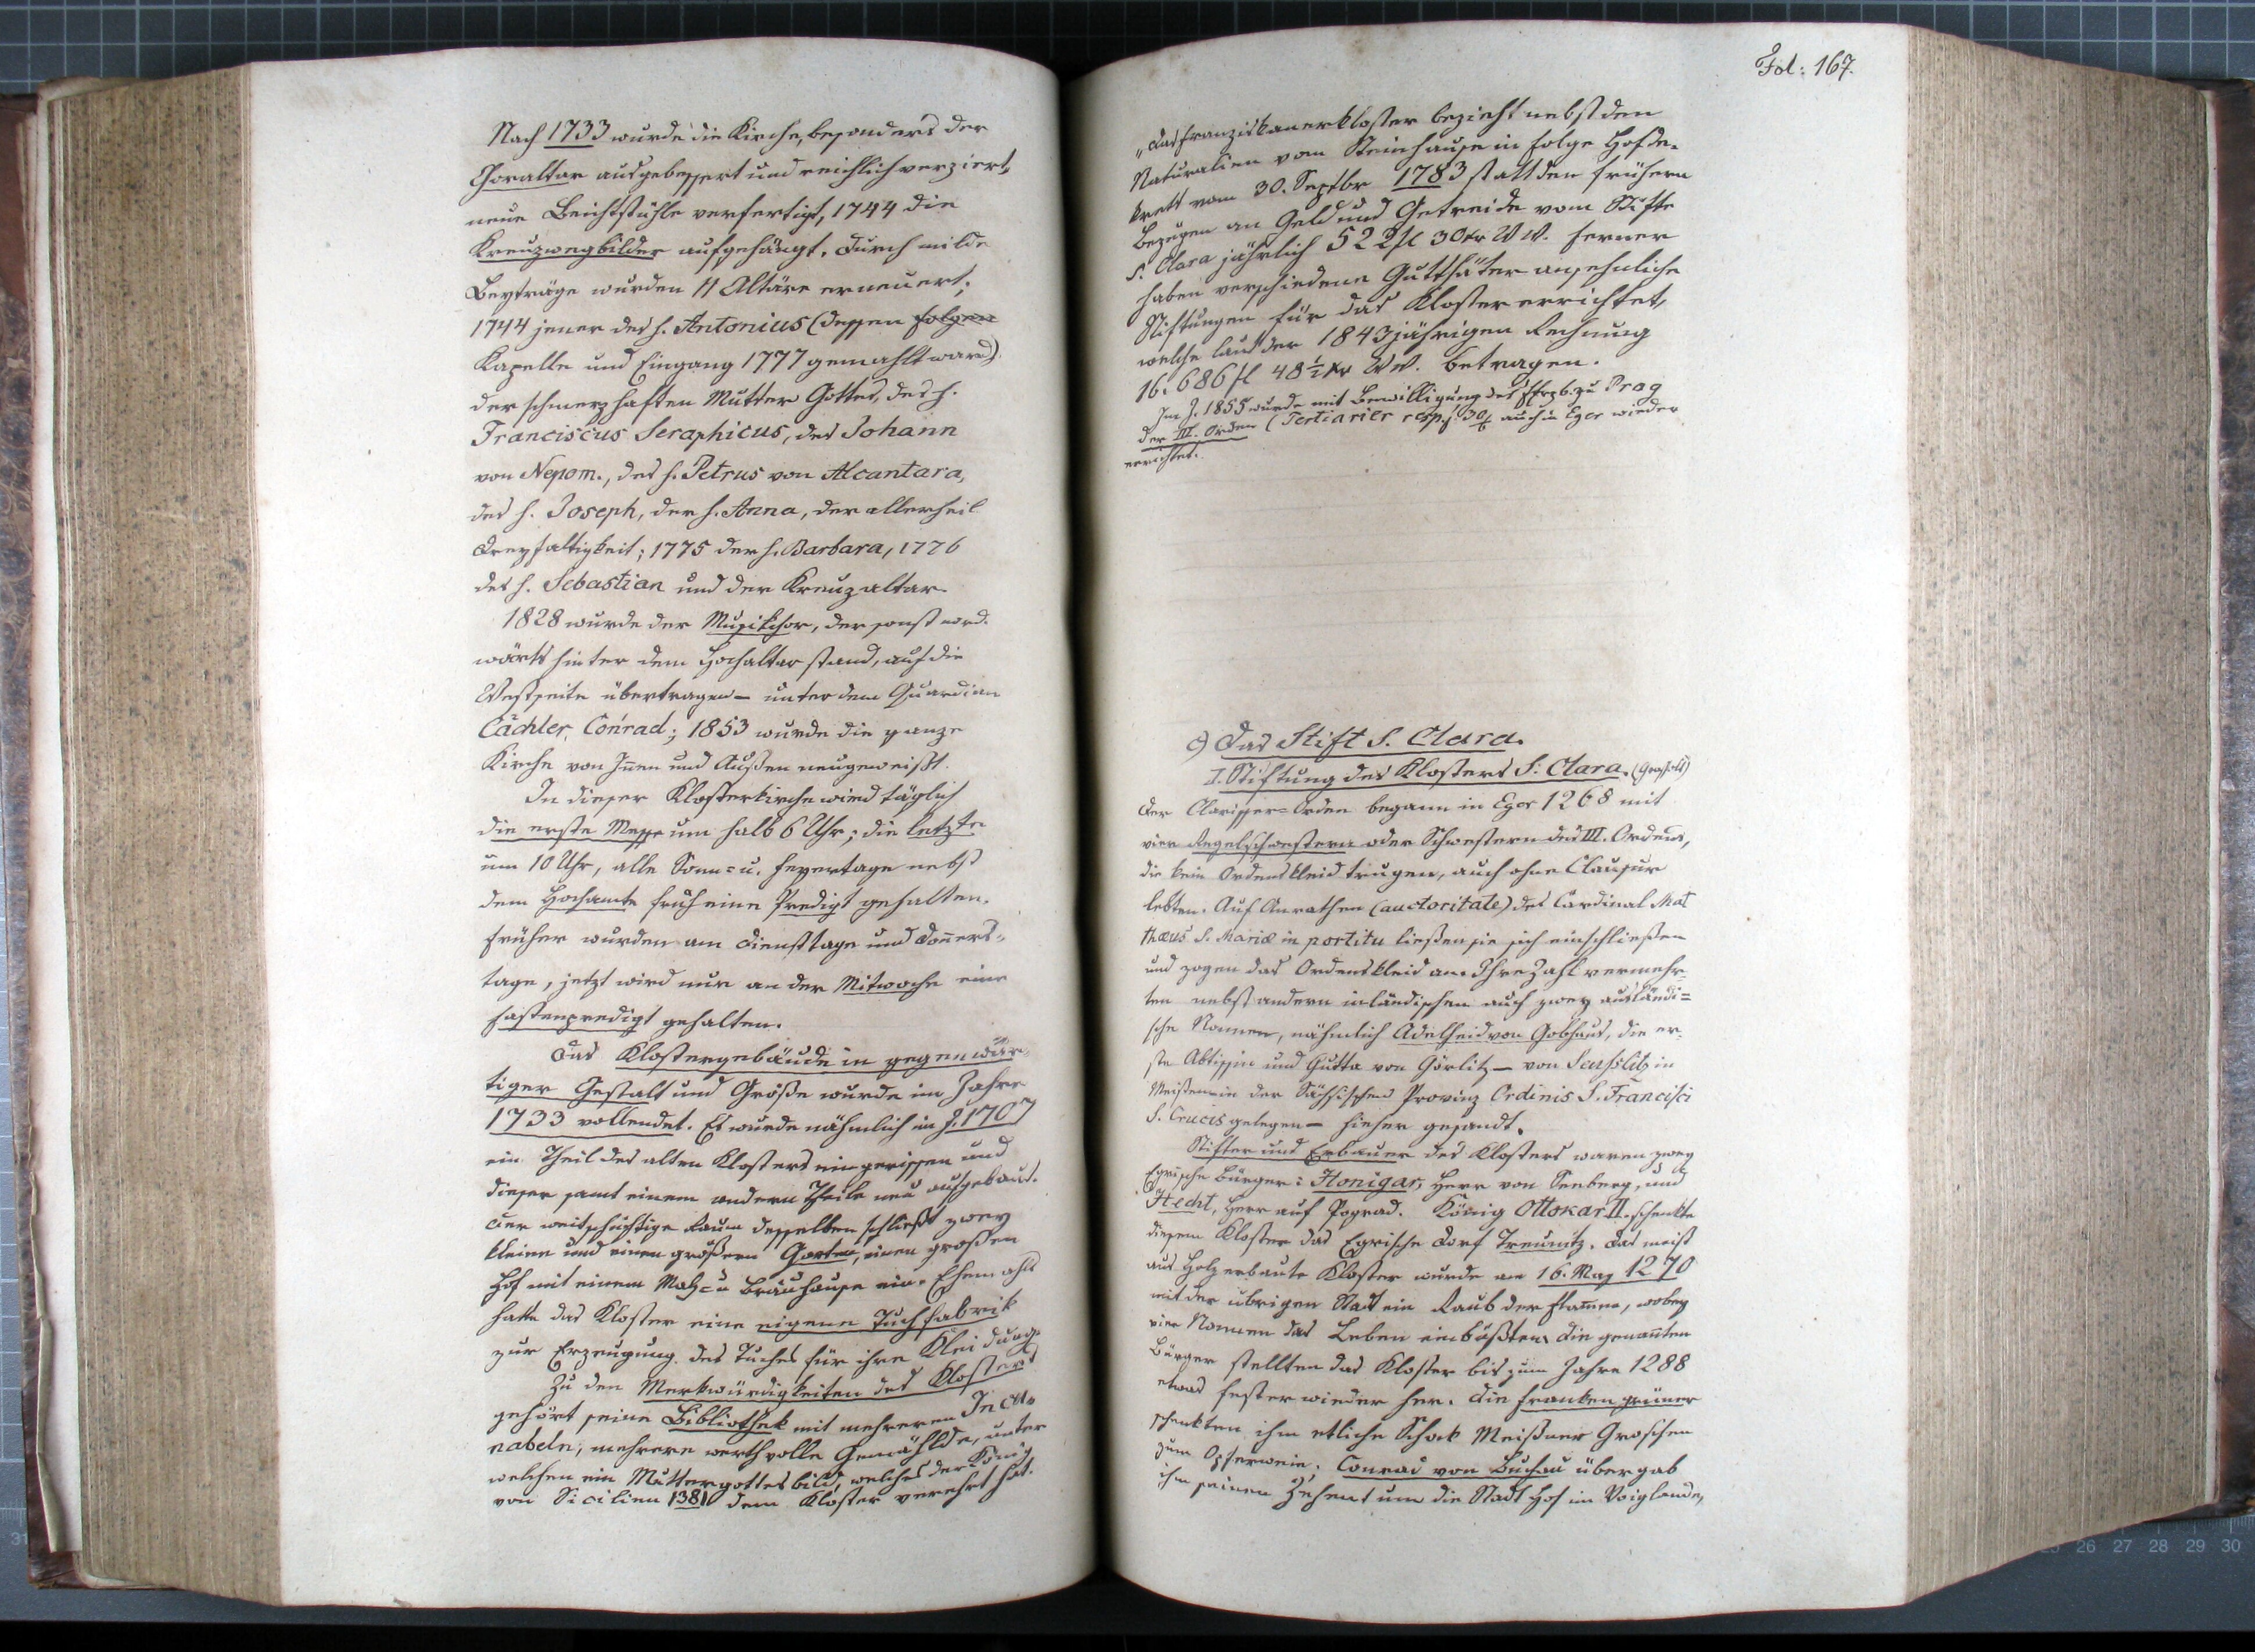 Nach 1733 wurde die Kirche, besonders der
Choraltar ausgebessert und reichlich verziert,
neue Beichtstühle verfertigt, 1744 die
Kreuzwegbilder aufgehängt. Durch milde
Beyträge wurden 11 Altäre erneuert;
1744 jener des h. Antonius (dessen folgen
Kapelle und Eingang 1777 gemahlt ward)
der schmerzhaften Mutter Gottes, des h.
Franciscus Seraphicus, des Johann
von Nepom., des h. Petrus von Alcantara,
des h. Joseph, der h. Anna, der allerheil
Dreyfaltigkeit; 1775 der h. Barbara, 1776
des h. Sebastian und der Kreuzaltar.
1828 wurde der Musikchor, der sonst nord-
wärts hinter dem Hochaltar stand, auf die
Westseite übertragen – unter dem Guardian
Cächler, Conrad; 1853 wurde die ganze
Kirche von Innen und Außen neugeweißt.
In dieser Klosterkirche wird täglich
die erste Messe um halb 6 Uhr; die letzte
um 10 Uhr, alle Sonn= u. Feyertage nebst
dem Hochamte früh eine Predigt gehalten.
Früher wurden am Diensttage und Donners-
tage, jetzt wird nur an der Mitwoche eine
Fastenpredigt gehalten.
Das Klostergebäude in gegenwär-
tiger Gestalt und Größe wurde im Jahre
1733 vollendet. Es wurde nähmlich im J. 1707
ein Theil des alten Klosters eingerissen und
dieser samt einem andern Theile neu aufgebaut.
Der weitschichtige Raum desselben schließt zwey
kleine und einen größern Garten, einen großen
Hof mit einem Malz= u Bräuhause ein. Ehemahls
hatte das Kloster eine eigene Tuchfabrik
zur Erzeugung des Tuches für ihre Kleidung.
Zu den Merkwürdigkeiten des Klosters
gehört seine Bibliothek mit mehreren Incu-
nabeln, mehrere werthvolle Gemählde, unter
welchen ein Muttergottesbild, welches der König
von Sicilien 1381 dem Kloster verehrt hat.
Fol: 167.
„Das Franziskanerkloster bezieht nebst den
Naturalien vom Steinhause in Folge Hofde-
krett vom 30. Septbr 1783 statt den frühern
Bezügen an Geld und Getreide vom Stifte
S. Clara jährlich 522 fl 30 kr WW. Ferner
haben verschiedene Gutthäter ansehnliche
Stiftungen für das Kloster errichtet,
welche laut der 1843jährigen Rechnung
16.686 fl 48½ kr WW. betragen.
Im J. 1855 wurde mit Bewilligung des zu Prag
der III. Orden (Tertiarier auch in Eger wieder
errichtet.
c) Das Stift S. Clara.
I. Stiftung des Klosters S: Clara.
Der Clarisser=Orden begann in Eger 1268 mit
vier Regelschwestern oder Schwestern des III. Ordens,
die kein Ordenskleid trugen, auch ohne Clausur
lebten. Auf Anrathen (auctoritate) des Cardinal Mat
thæus S. Mariæ in portitu ließen sie sich einschließen
und zogen das Ordenskleid an. Ihre Zahl vermehr-
ten nebst andern inländischen auch zwey ausländi=
sche Nonnen, nähmlich Adelheid von Gobhaus, die er-
ste Abtissin und Gutta von Görlitz – von Seußlitz in
Meißen in der Sächsischen Provinz Ordinis S. Francisci
S. Crucis gelegen – hieher gesandt.
Stifter und Erbauer des Klosters waren zwey
Egrische Bürger: Honigar, Herr von Seeberg, und
Hecht, Herr auf Pograd. König Ottokar II. schenkte
diesem Kloster das Egrische Dorf Treunitz. Das meist
aus Holz erbaute Kloster wurde am 16. May 1270
mit der übrigen Stadt ein Raub der Flamme, wobey
vier Nonnen das Leben einbüßten. Die genannten
Bürger stellten das Kloster bis zum Jahre 1288
etwas fester wieder her. Die Frankengrüner
schenkten ihm etliche Schock Meißner Groschen
zum Opferwein. Conrad von Buchau übergab
ihm seinen Zehent um die Stadt Hof im Voiglande,